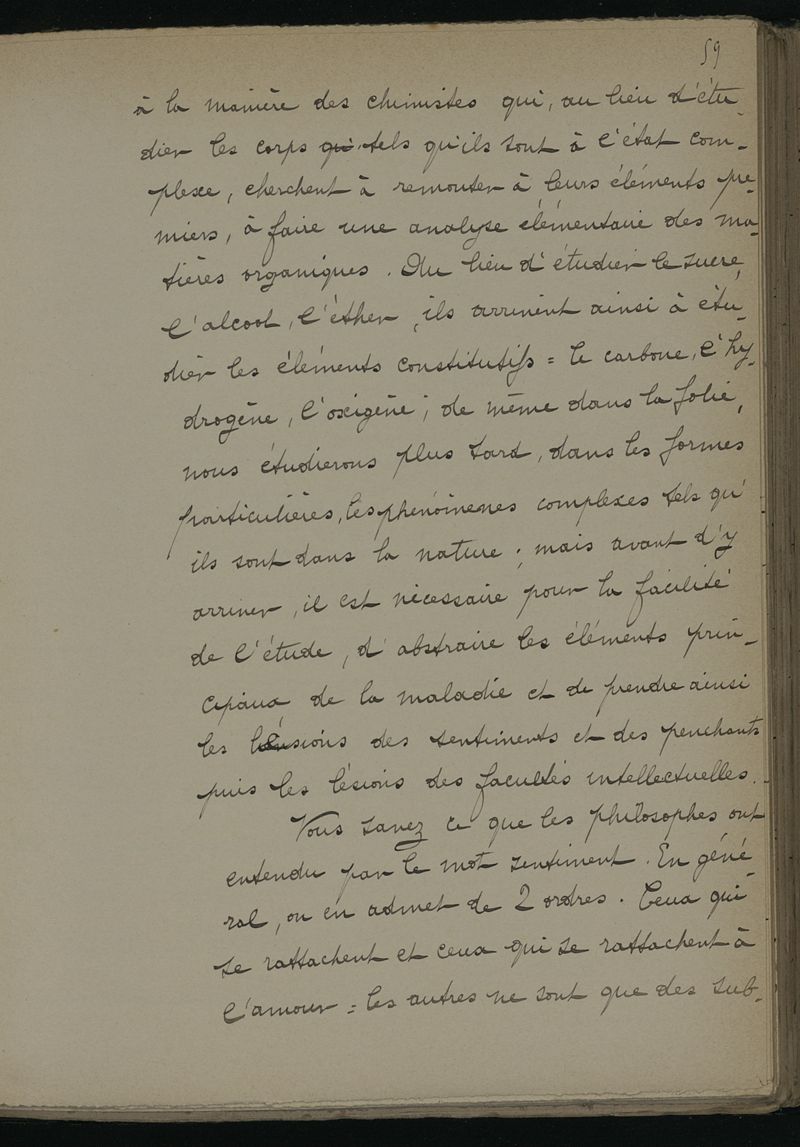 59
à la manière des chimistes qui, au lieu d'étu-
dier les corps qui tels qu'ils sont à l'état com-
plexe, cherchent à remonter à leurs éléments pre-
miers, à faire une analyse élémentaire des ma-
tières organiques. Au lieu d'étudier le sucre,
l'alcool, l'éther, ils arrivent ainsi à étu-
dier les éléments constitutifs = le carbone, l'hy-
drogène, l'oxigène; de même dans la folie,
nous étudierons plus tard, dans les formes
particulières, les phénomènes complexes tels qu'
ils sont dans la nature; mais avant d'y
arriver, il est nécessaire pour la facilité
de l'étude, d'abstraire les éléments prin-
cipaux de la maladie et de prendre ainsi
les lésions des sentiments et des penchants
puis les lésions des facultés intellectuelles.
Vous savez ce que les philosophes ont
entendu par le mot sentiment. En géné-
ral, on en admet de 2 ordres. Ceux qui
se rattachent et ceux qui se rattachent à
l'amour = les autres ne sont que des sub-